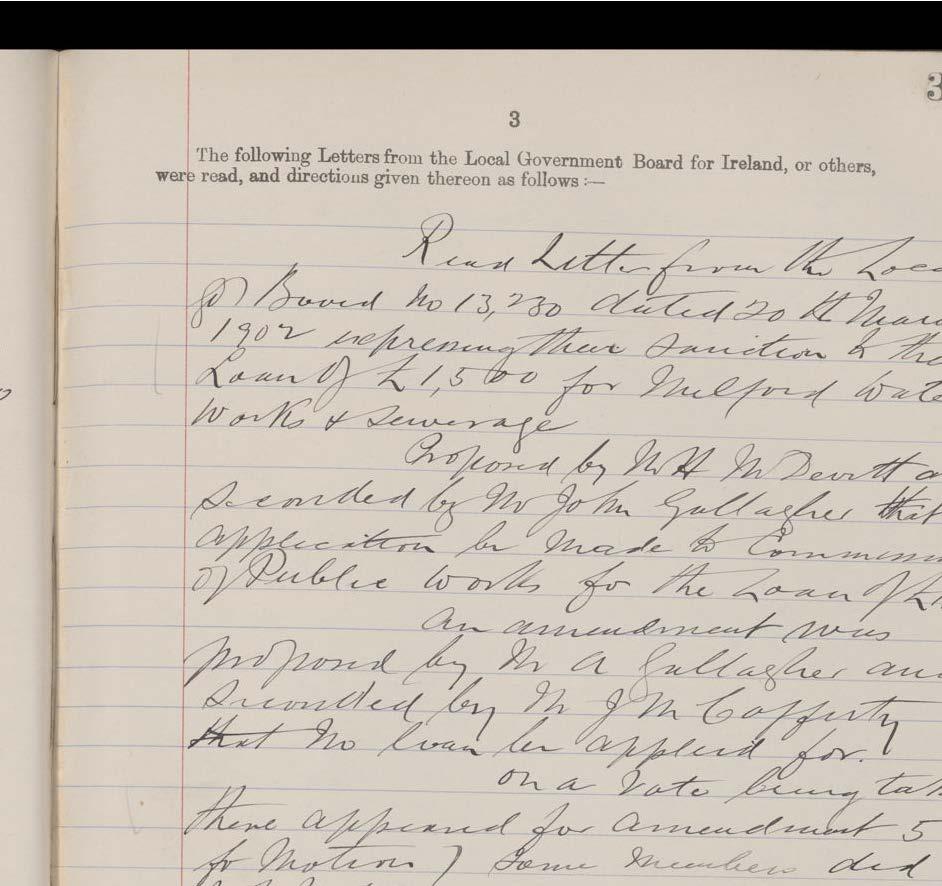 3
3
The following Letters from the Local Government Board for Ireland, or others,
were read, and directions given thereon as follows :—
Read Letter from the Loc
Board No 13,230 dated 20th Mar
1902 expressing their sanction to the
Loan of £1,500 for Milford Wate
Works & Sewerage
Proposed by Mr H McDevitt a
seconded by Mr John Gallagher that
application be made to Commiss
of Public Works for the Loan of £1
An amendment was
proposed by Mr A Gallagher an
seconded by Mr J McCafferty
that no loan be applied for.
On a vote being tak
there appeared for amendment 5
for Motion 7 Some members did